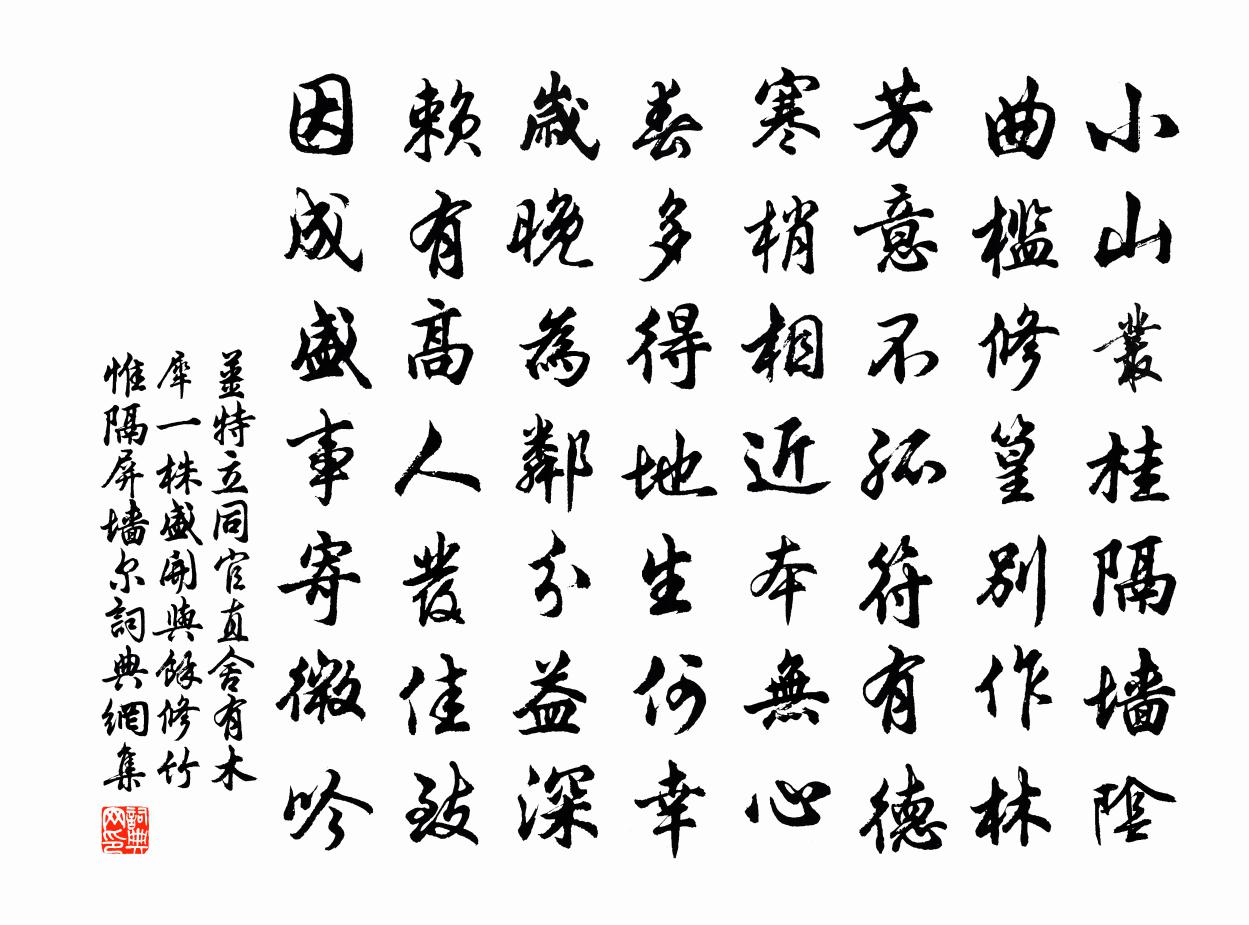 小山叢桂隔墙陰
曲檻修篁別作林
芳意不孤符有德
寒梢相近本無心
春多得地生何幸
歲晚為鄰分益深
賴有高人發佳致
因成盛事寄微吟
姜特立同官直舍有木
犀一株盛開與餘修竹
惟隔屏墻尔詞典網集
詞典
网印